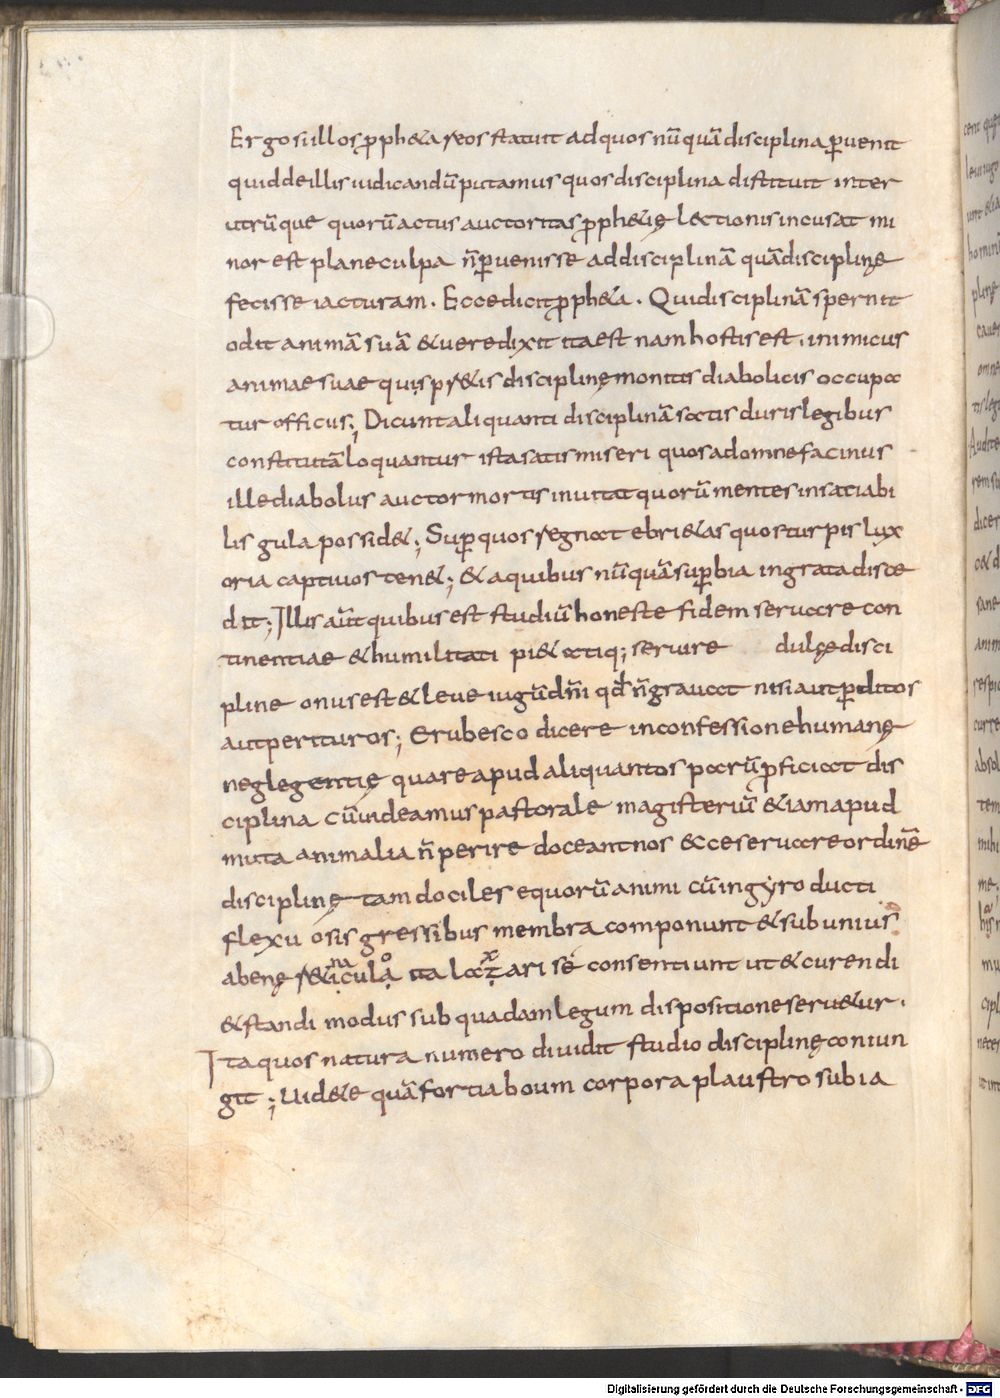 Ergo si illos ꝓph&a reos statuit ad quos nū quā disciplina ꝑuenit
quid de illis iudicandū putamus quos disciplina distituit inter
utrūque quorū actus auctoritas ꝓph&ię lectionis incusat mi
nor est plane culpa n̄ ꝑuenisse ad disciplinā quā disciplinę
fecisse iacturam. Ecce dicit ꝓph&a. Qui disciplinā spernit
odit animā suā & uere dixit ita est nam hostis est. inimicus
animae suae quispr&is disciplinę monitis diabolicis occupa
tur officus; Dicunt aliquanti disciplinā satis duris legibus
constitutā loquantur ista satis miseri quos ad omne facinus
ille diabolus auctor mortis inuitat quorū mentes insatiabi
lis gula possid&; Suꝑ quos regnat ebri&as quos turpis lux
oria captiuos ten&; & a quibus nū quā suꝑbia ingrata disce
dit; Illis aūt quibus est studiū honeste fidem seruare con
tinentiae & humilitati pi&atiq; seruire dulçe disci
pline onus est & leue iugū dn̄i qđ n̄ grauat nisi aut ꝑditos
aut perituros; Erubesco dicere in confessione humanę
neglegentię quare apud aliquantos parū ꝓficiat dis
ciplina cū uideamus pastorale magisteriū & iam apud
muta animalia n̄ perire doceant nos ecce seruare ordinē
disciplinę tam dociles equorū animi cū in gyro ducti
flexu osis gressibus membra componunt & sub unius
abenę r&icula ita lazari se consentiunt ut & curendi
& standi modus sub quadam legum dispositione seru&ur.
Ita quos natura numero diuidit studio disciplinę coniun
git; Uid&e quā fortia boum corpora plaustro subia
Digitalisierung gefördert durch die Deutsche Forschungsgemeinschaft - DFG